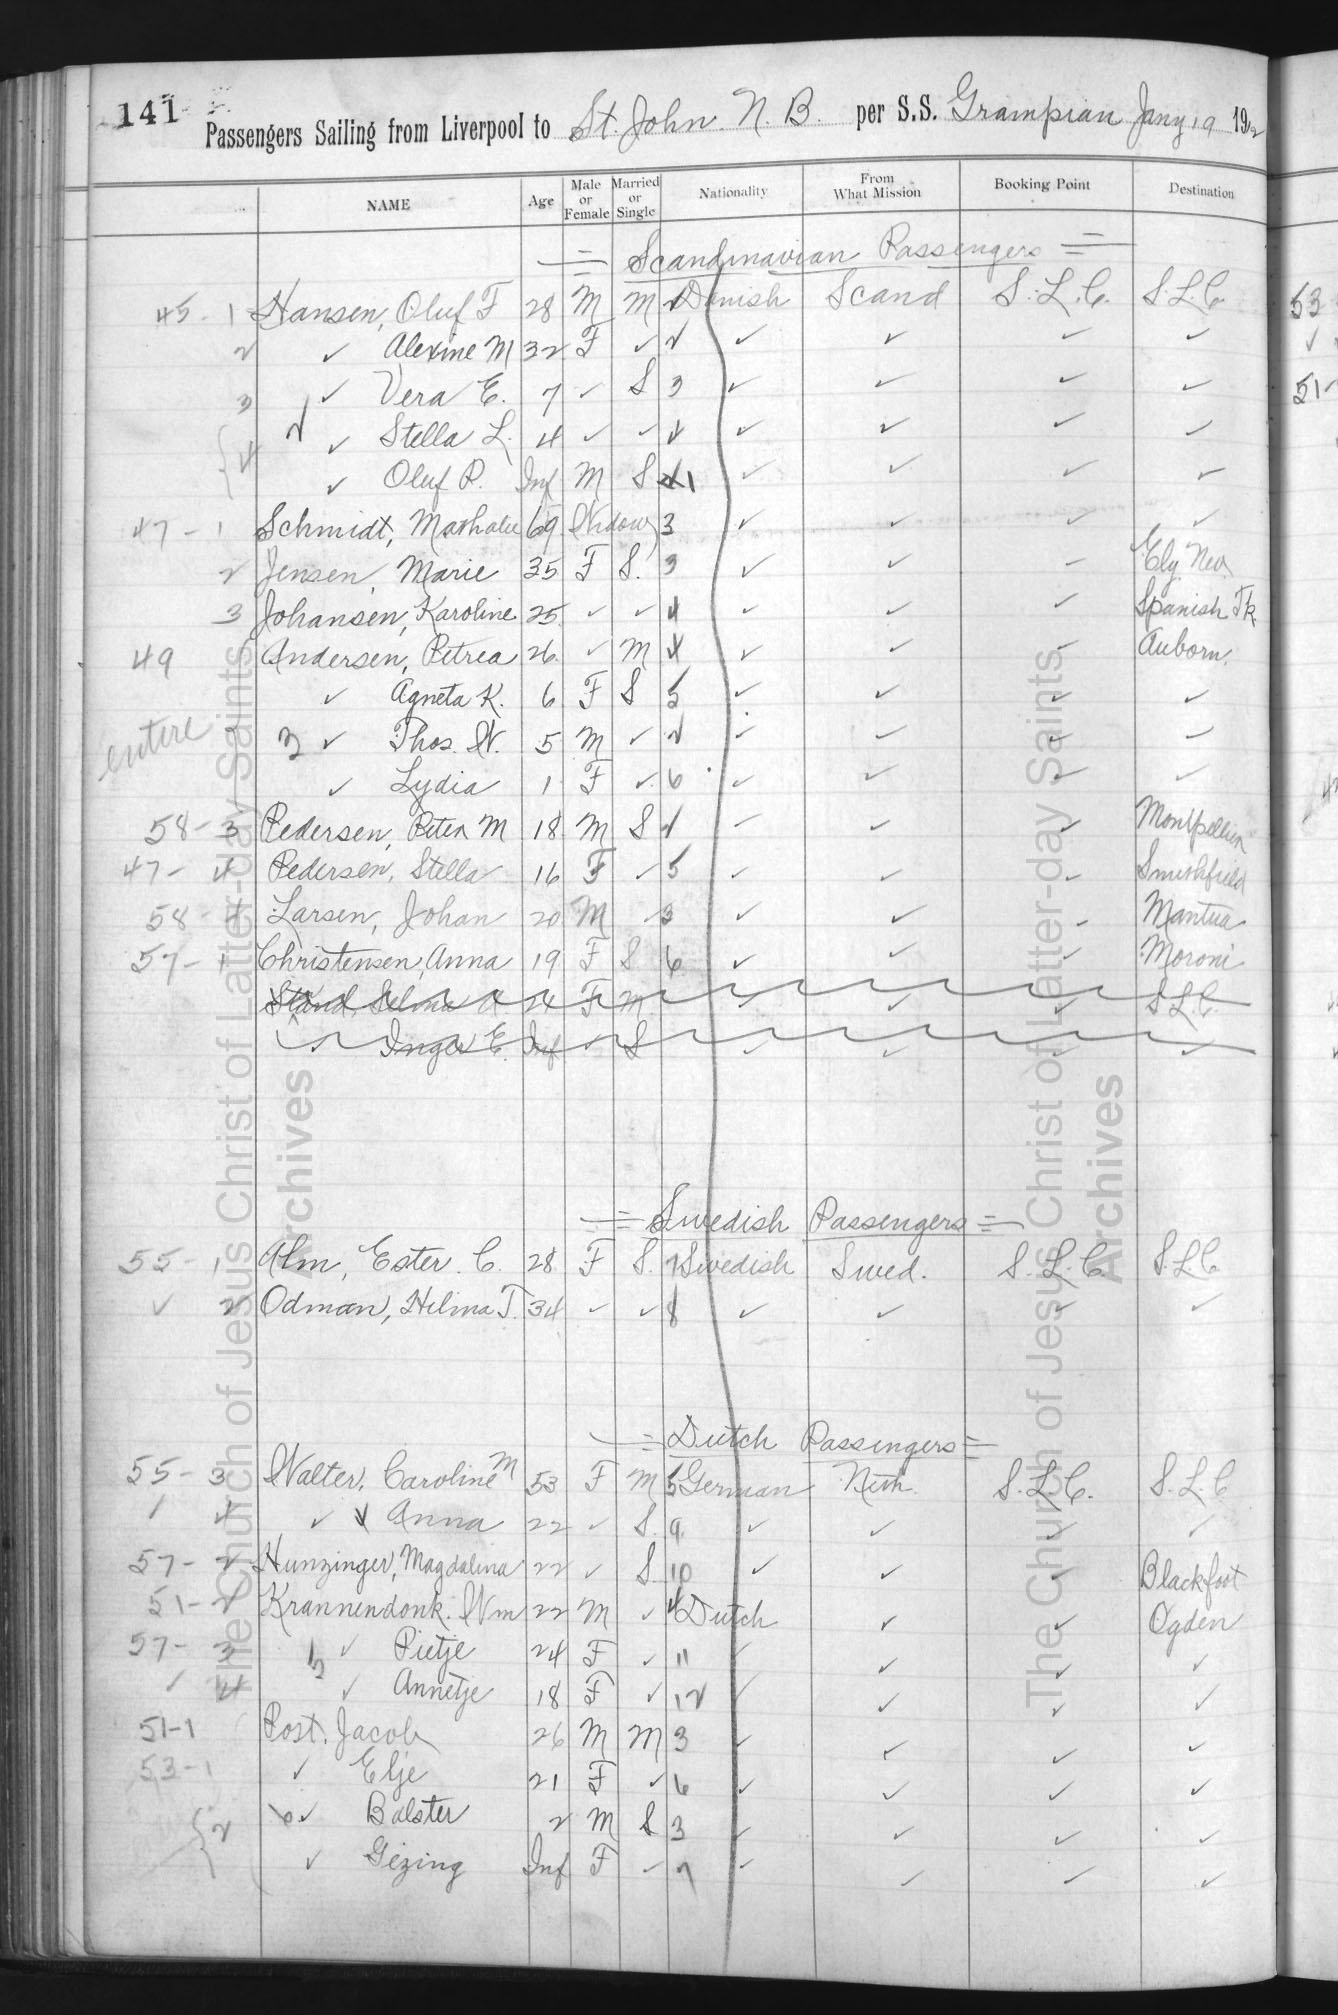 141
Passengers Sailing from Liverpool to St. John. N. B. per S.S. Grampian Jany 19 1912
NAME Age Male or Female Married or Single Nationality From What Mission Booking Point Destination
= Scandinavian Passengers =
45 - 1 Hansen, Oluf F 28 M M Danish Scand S. L. C. S.L.C.
2 ✓ Alexine M 32 F ✓ ✓ ✓ ✓ ✓
3 ✓ Vera E. 7 ✓ S 3 ✓ ✓ ✓ ✓
4 ✓ Stella L. 4 ✓ ✓ ✓ ✓ ✓ ✓
✓ Oluf P. Inf M S 1 ✓ ✓ ✓ ✓
47 - 1 Schmidt, 69 Widow 3 ✓ ✓ ✓ ✓
2 Jensen, Marie 35 F S. 3 ✓ ✓ ✓ Ely Nev.
3 Johansen, Karoline 25 ✓ ✓ 4 ✓ ✓ ✓ Spanish Fk.
49 Andersen, Petrea 26 ✓ M 4 ✓ ✓ ✓ Auborn.
✓ Agneta K. 6 F S 5 ✓ ✓ ✓ ✓
entire 3 ✓ Thos. W. 5 M ✓ 2 ✓ ✓ ✓ ✓
✓ Lydia 1 F ✓ 6 ✓ ✓ ✓ ✓
58 - 3 Pedersen, Peter M 18 M S 2 ✓ ✓ ✓ Montpellier
47 - 4 Pedersen, Stella 16 F ✓ 5 ✓ ✓ ✓ Smithfield
58 - 4 Larsen, Johan 20 M ✓ 3 ✓ ✓ ✓ Mantua
57 - 1 Christensen, Anna 19 F S 6 ✓ ✓ ✓ Moroni
Stand, Selma A. 24 F M ✓ ✓ ✓ S.L.C.
✓ Inger E. Inf ✓ S ✓ ✓ ✓ ✓
= Swedish Passengers =
55 - 1 Alm, Ester C. 28 F S. 7 Swedish Swed. S. L. C. S.L.C.
✓ 2 Odman, Hilma T. 34 ✓ ✓ 8 ✓ ✓ ✓ ✓
= Dutch Passengers =
55 - 3 Walter, Caroline M 53 F M 5 German Neth. S. L. C. S. L. C
4 ✓ Anna 22 ✓ S. 9 ✓ ✓ ✓ ✓
57 - 2 Hunzinger, Magdalina 22 ✓ S 10 ✓ ✓ ✓ Blackfoot
51 - 2 Krannendonk. Wm 22 M ✓ 4 Dutch ✓ ✓ Ogden
57 - 3 ✓ Pietje 24 F ✓ 11 ✓ ✓ ✓ ✓
✓ 4 ✓ Annetje 18 F ✓ 12 ✓ ✓ ✓ ✓
51-1 Post. Jacob 26 M M 3 ✓ ✓ ✓ ✓
53-1 ✓ Elje 21 F ✓ 6 ✓ ✓ ✓ ✓
2 ✓ Balster 2 M S 3 ✓ ✓ ✓ ✓
✓ Gezing Inf F ✓ 7 ✓ ✓ ✓ ✓
The Church of Jesus Christ of Latter-day Saints
Archives
The Church of Jesus Christ of Latter-day Saints
Archives
53
51-